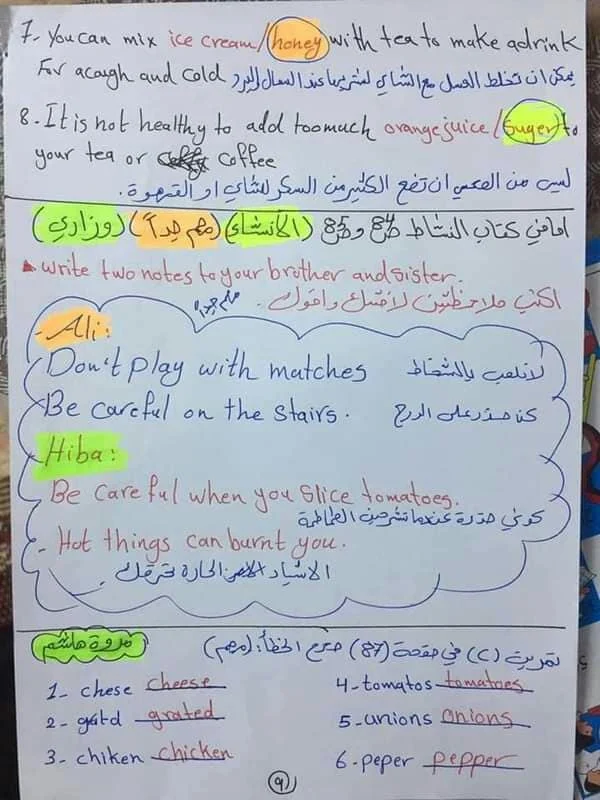 7- You can mix ice cream / honey with tea to make a drink
For a cough and cold يمكن ان تخلط العسل مع الشاي لشربها عند السعال والبرد
8- It is not healthy to add too much orange juice / Suger to
your tea or coffee
ليس من الصحي ان تضع الكثير من السكر للشاي او القهوة.
اما في كتاب النشاط ص84 وص85 (الأنشاء) (مهم جداً) (وزاري)
write two notes to your brother and sister.
اكتب ملاحظتين لأختك واخوك. مهم جداً
- Ali:
Don't play with matches لا تلعب بالشخاط
Be careful on the stairs. كن حذر على الدرج
Hiba:
Be careful when you slice tomatoes.
كوني حذرة عندما تشرحين الطماطة
- Hot things can burnt you.
الاشياء الحارة تحرقك.
تمرين (C) في صفحة (87) صحح الخطأ: (مهم) مروة هاشم
1- chese cheese 4- tomatos tomatoes
2- gratd grated 5- unions onions
3- chiken chicken 6- peper pepper
٩